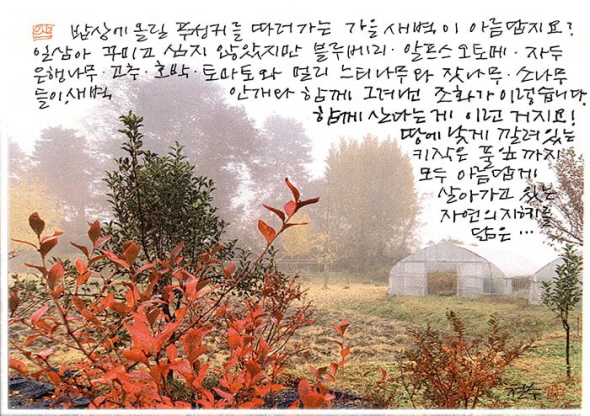 밥상에 올릴 푸성귀를 따러가는 가을 새벽이 아름답지요?
일삼아 꾸미고 심지 않았지만 블루베리·알프스오토메·자두
은행나무·고추·호박·토마토와 멀리 느티나무와 잣나무·소나무
들이 새벽 안개와 함께 그려낸 조화가 이렇습니다.
함께 산다는 게 이런 거지요!
땅에 낮게 깔려있는
키작은 풀잎까지
모두 아름답게
살아가고 있는
자연의 지혜를
닮은 ...